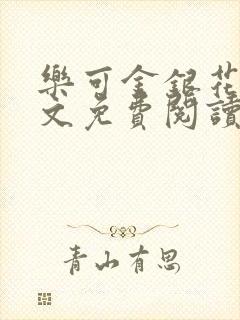 樂可金銀花
文免費閱讀
青山有思